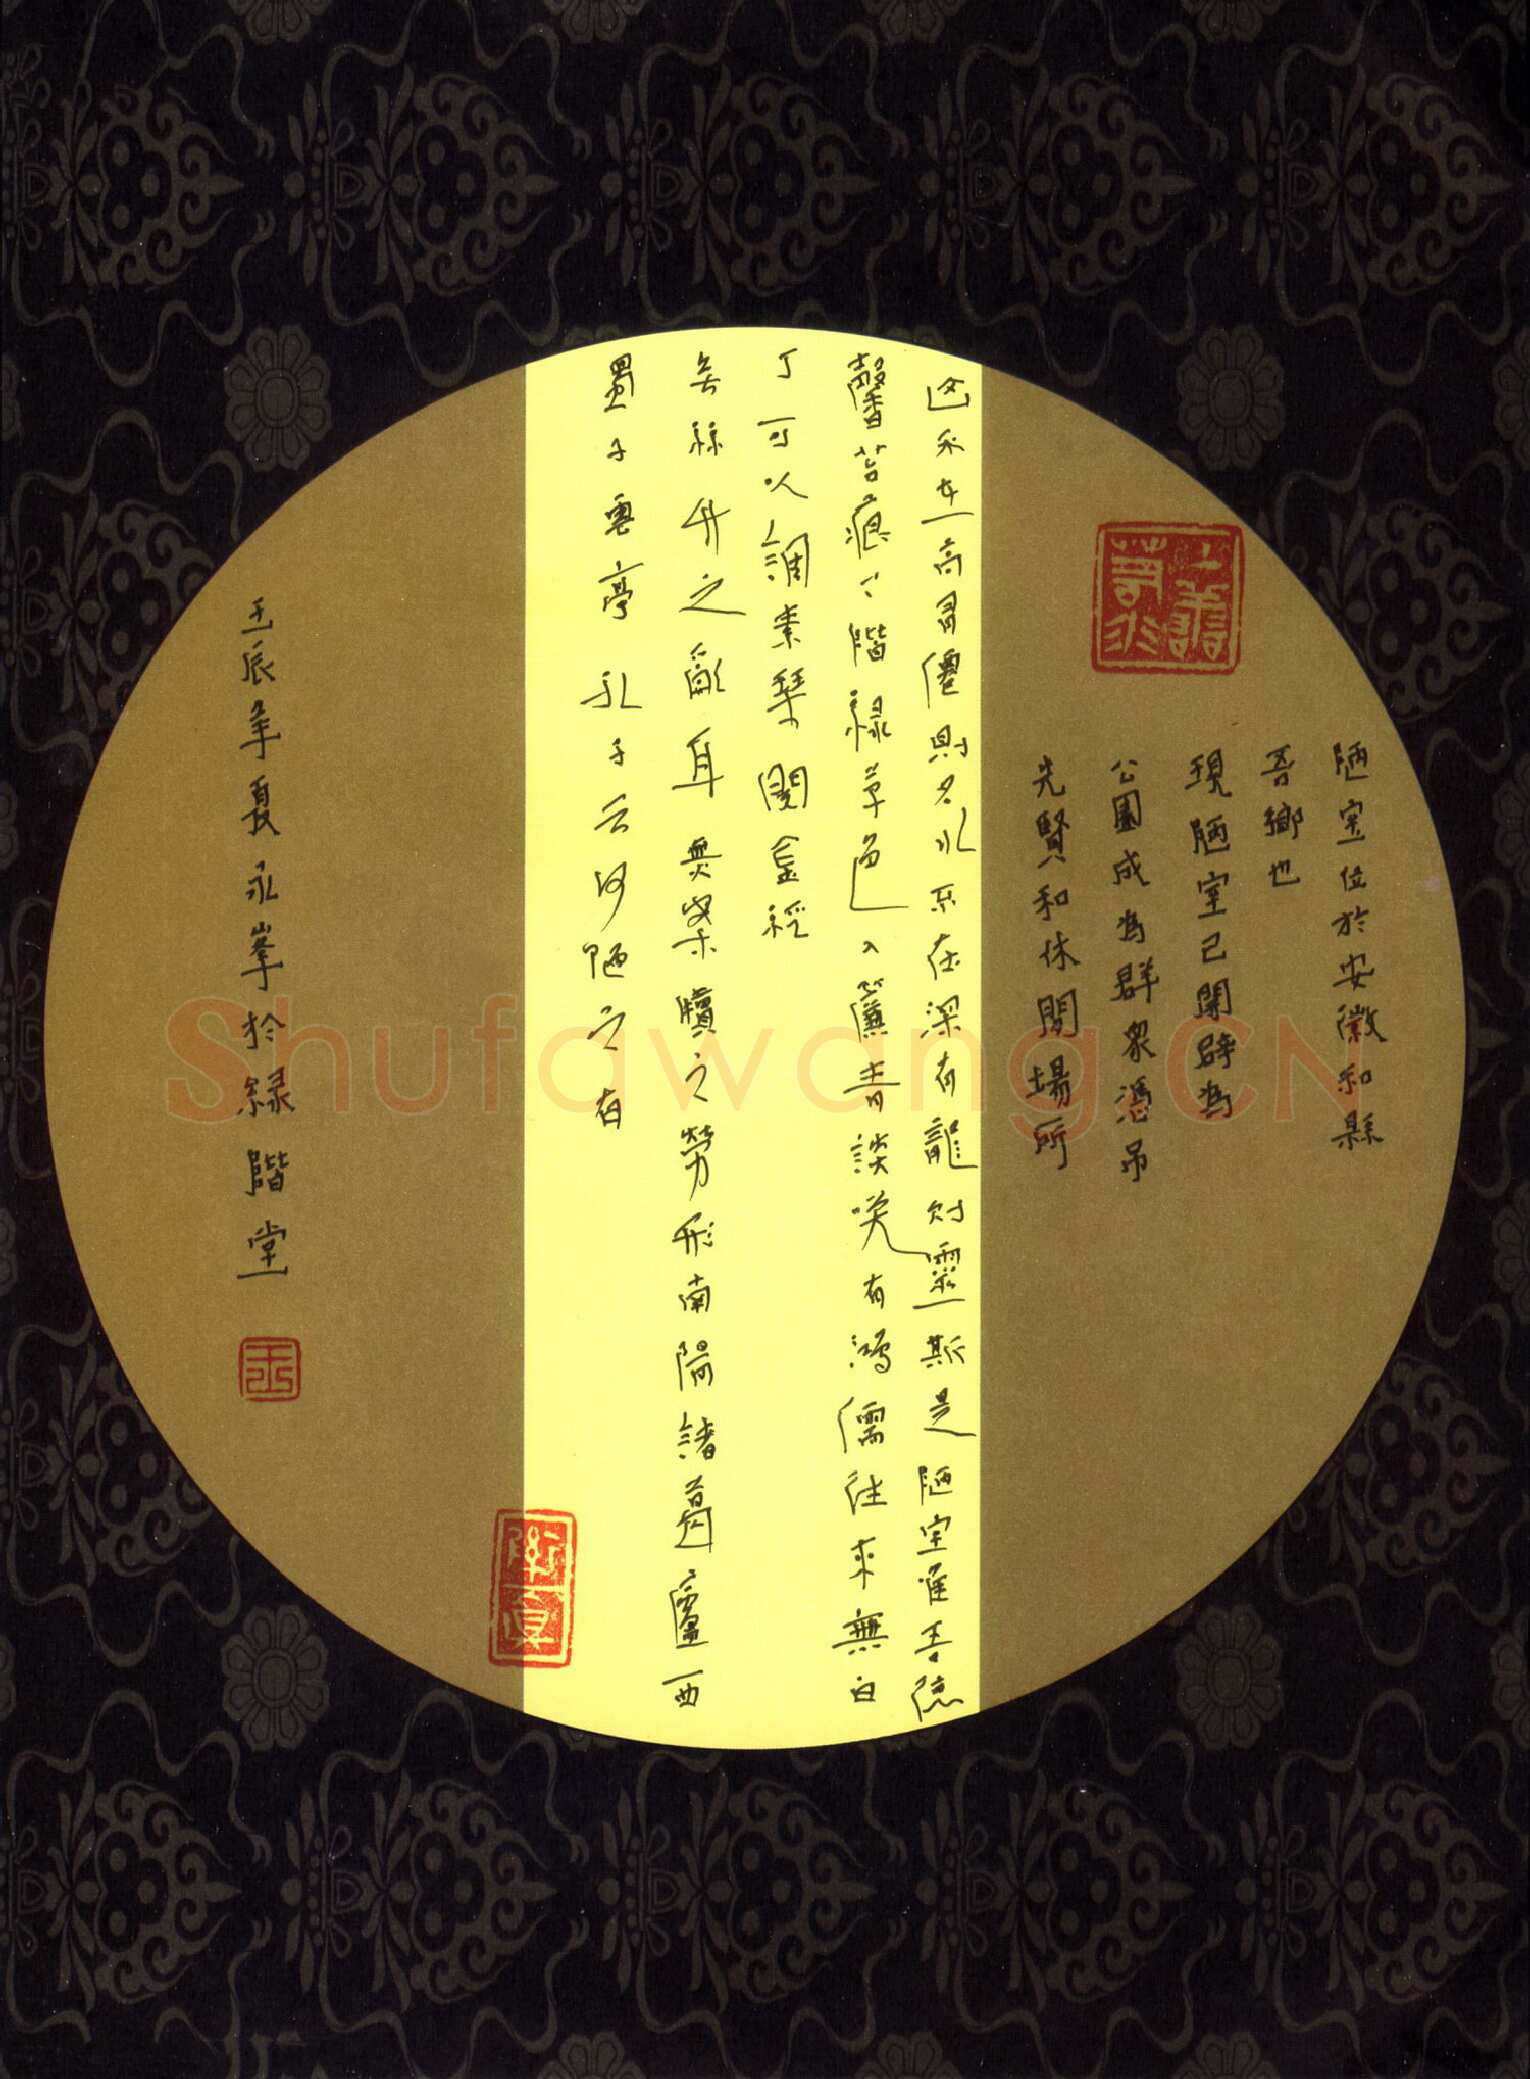 陋室位於安徽和縣
吾鄉也
現陋室已開辟為
公園成為群眾憑吊
先賢和休閒場所
山不在高有僊則名水不在深有龍則靈斯是陋室唯吾德
馨苔痕上階綠草色入簾青談笑有鴻儒往來無白
丁可以調素琴閱金經
無絲竹之亂耳無案牘之勞形南陽諸葛廬西
蜀子雲亭孔子云何陋之有
壬辰年夏永峯於綠階堂
Shufawang.CN